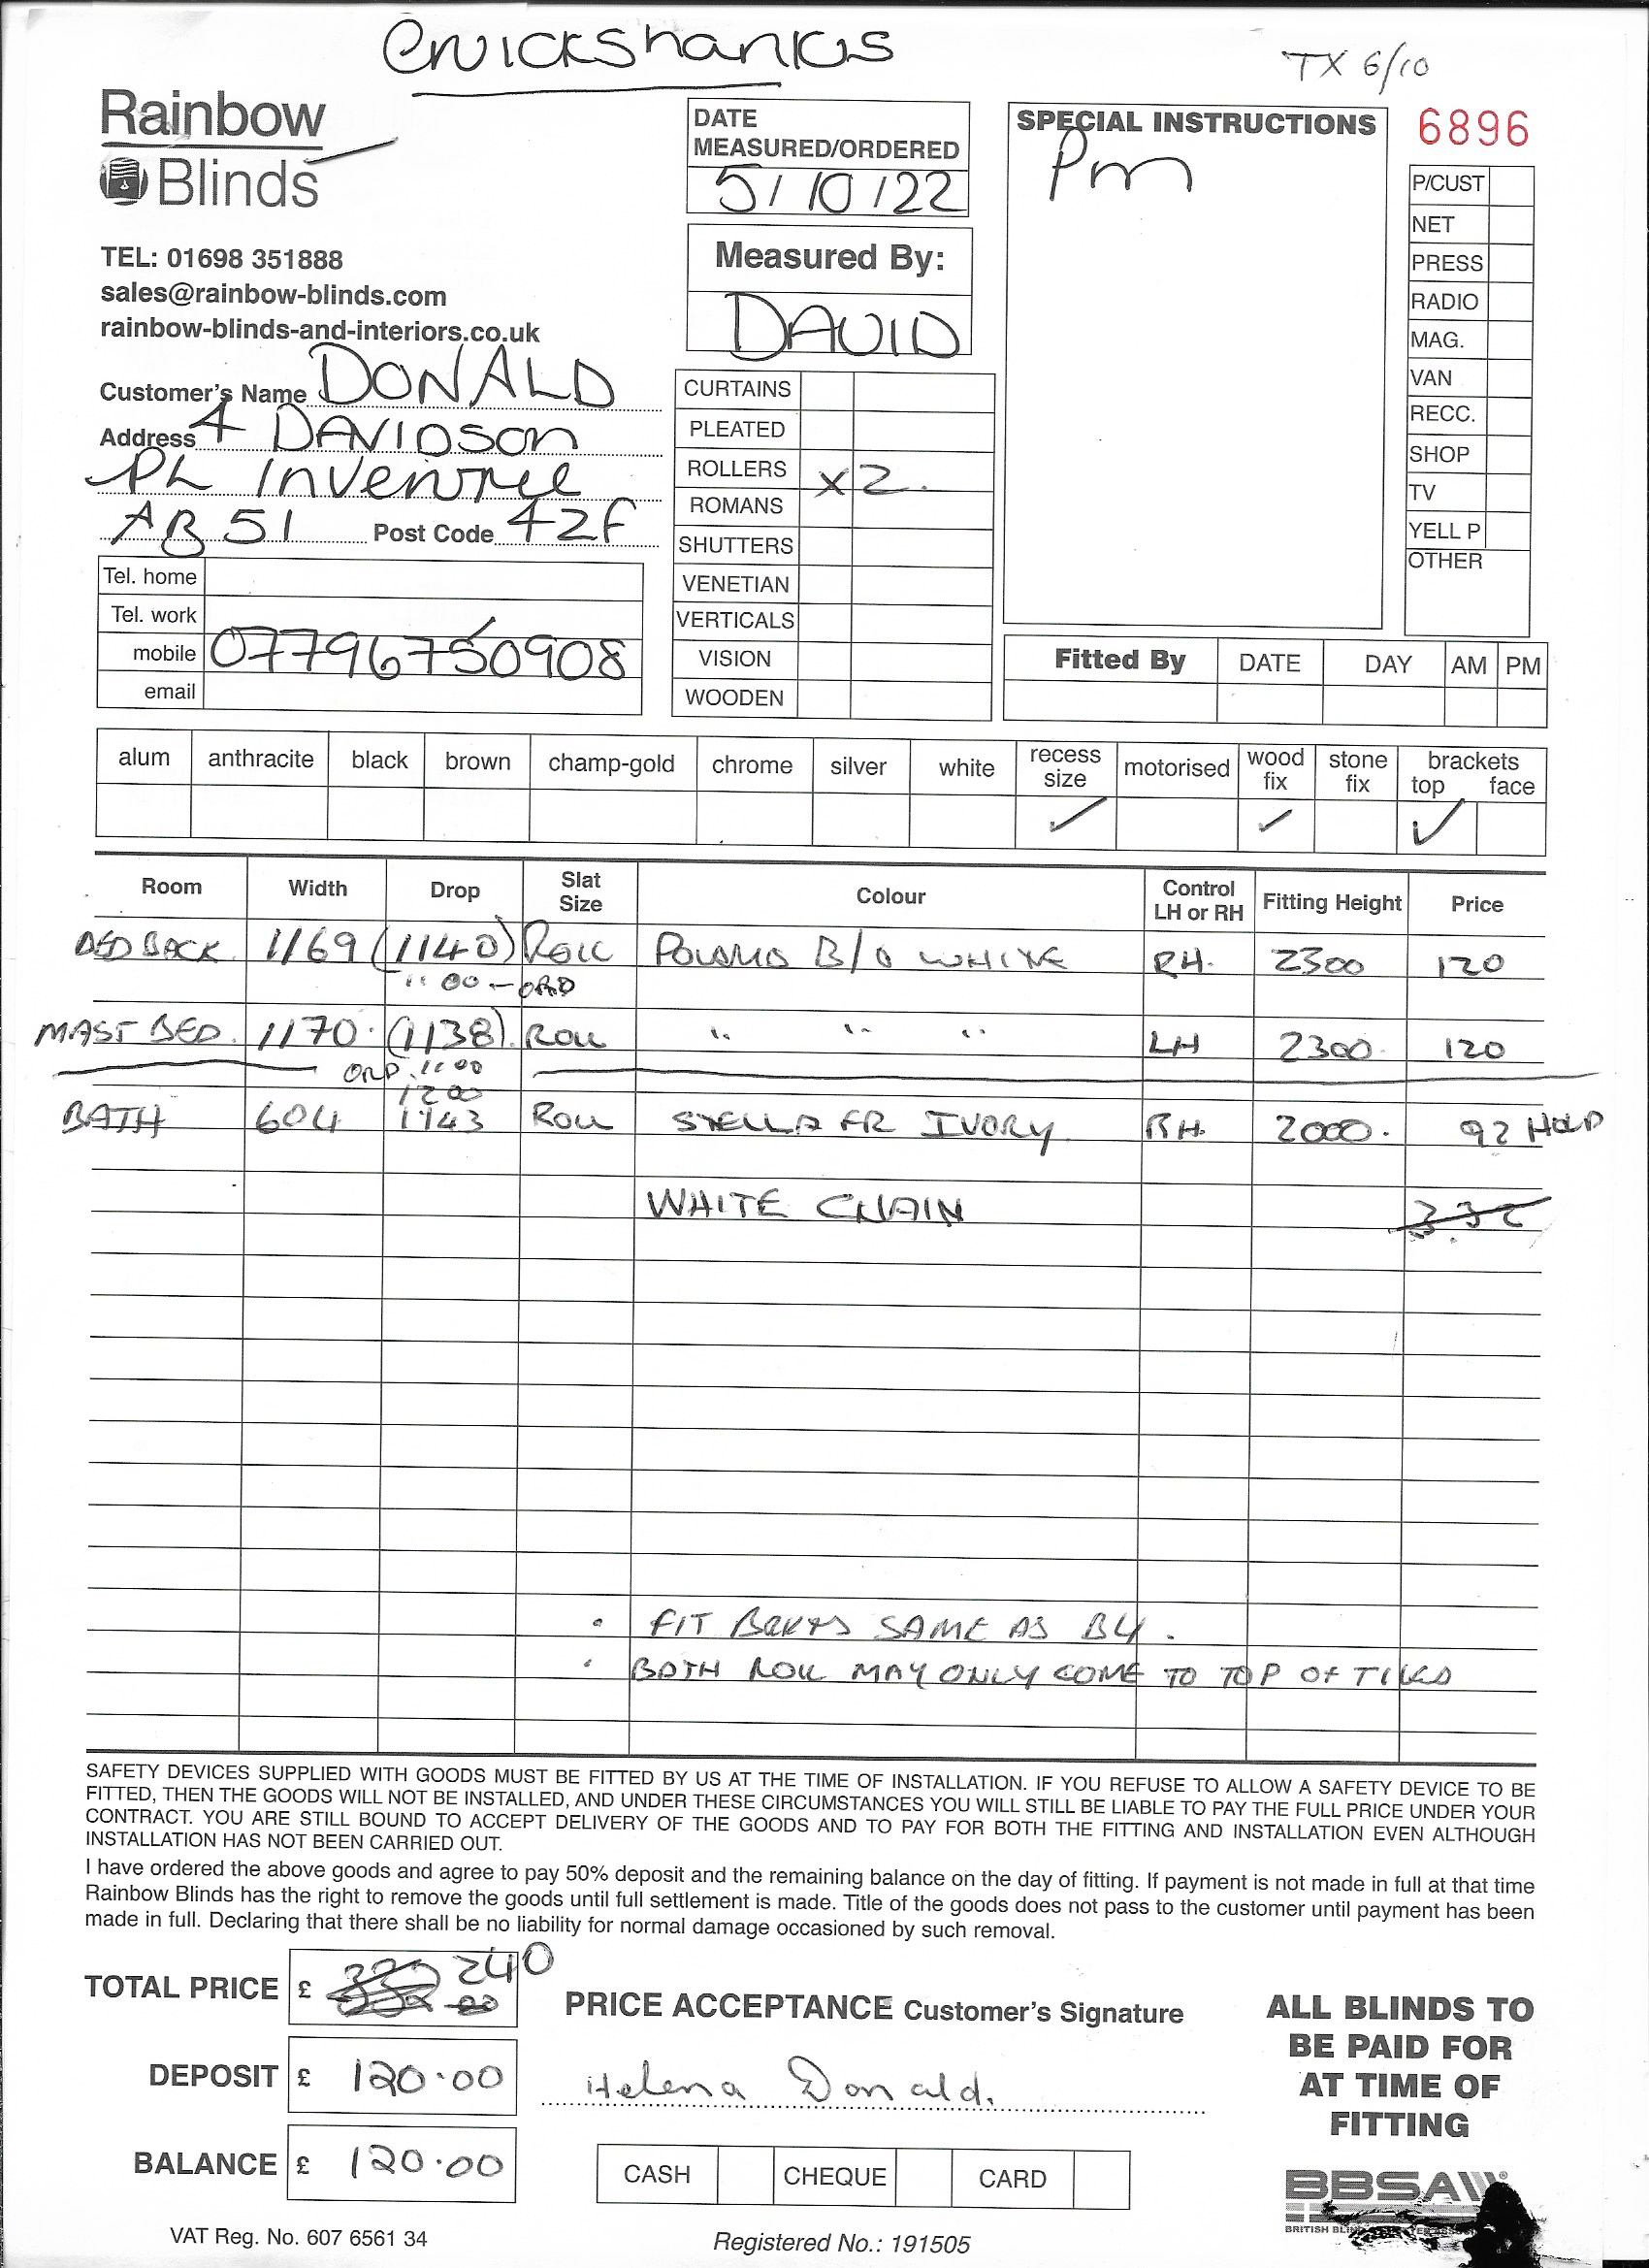 Cruickshanks
TX 6/10
Rainbow
Blinds
DATE
MEASURED/ORDERED
5/10/22
SPECIAL INSTRUCTIONS
Pm
6896
P/CUST
NET
PRESS
RADIO
MAG.
VAN
RECC.
SHOP
TV
YELL P
OTHER
TEL: 01698 351888
sales@rainbow-blinds.com
rainbow-blinds-and-interiors.co.uk
Measured By:
DAVID
Customer's Name DONALD
Address 4 DAVIDSON
PL INVERURIE
AB51 Post Code 4ZF
Tel. home
Tel. work
mobile 07796750908
email
CURTAINS
PLEATED
ROLLERS x2.
ROMANS
SHUTTERS
VENETIAN
VERTICALS
VISION
WOODEN
Fitted By DATE DAY AM PM
alum anthracite black brown champ-gold chrome silver white recess size motorised wood fix stone fix brackets top face
✓ ✓ ✓
Room Width Drop Slat Size Colour Control LH or RH Fitting Height Price
BED BACK 1169 (1140) ROLL B/O WHITE RH. 2300 120
1100 - ORD
MAST BED. 1170. (1138). ROLL " " " LH 2300. 120
ORD. 1100
1200
BATH 604 1143 ROLL STELLA FR IVORY RH. 2000. 92 HOLD
WHITE CHAIN 332
• FIT BRKTS SAME AS B4.
• BATH ROLL MAY ONLY COME TO TOP OF TILES
SAFETY DEVICES SUPPLIED WITH GOODS MUST BE FITTED BY US AT THE TIME OF INSTALLATION. IF YOU REFUSE TO ALLOW A SAFETY DEVICE TO BE
FITTED, THEN THE GOODS WILL NOT BE INSTALLED, AND UNDER THESE CIRCUMSTANCES YOU WILL STILL BE LIABLE TO PAY THE FULL PRICE UNDER YOUR
CONTRACT. YOU ARE STILL BOUND TO ACCEPT DELIVERY OF THE GOODS AND TO PAY FOR BOTH THE FITTING AND INSTALLATION EVEN ALTHOUGH
INSTALLATION HAS NOT BEEN CARRIED OUT.
I have ordered the above goods and agree to pay 50% deposit and the remaining balance on the day of fitting. If payment is not made in full at that time
Rainbow Blinds has the right to remove the goods until full settlement is made. Title of the goods does not pass to the customer until payment has been
made in full. Declaring that there shall be no liability for normal damage occasioned by such removal.
TOTAL PRICE £ 240
DEPOSIT £ 120.00
BALANCE £ 120.00
PRICE ACCEPTANCE Customer's Signature
Helena Donald.
CASH CHEQUE CARD
ALL BLINDS TO
BE PAID FOR
AT TIME OF
FITTING
BBSA
BRITISH
VAT Reg. No. 607 6561 34
Registered No.: 191505